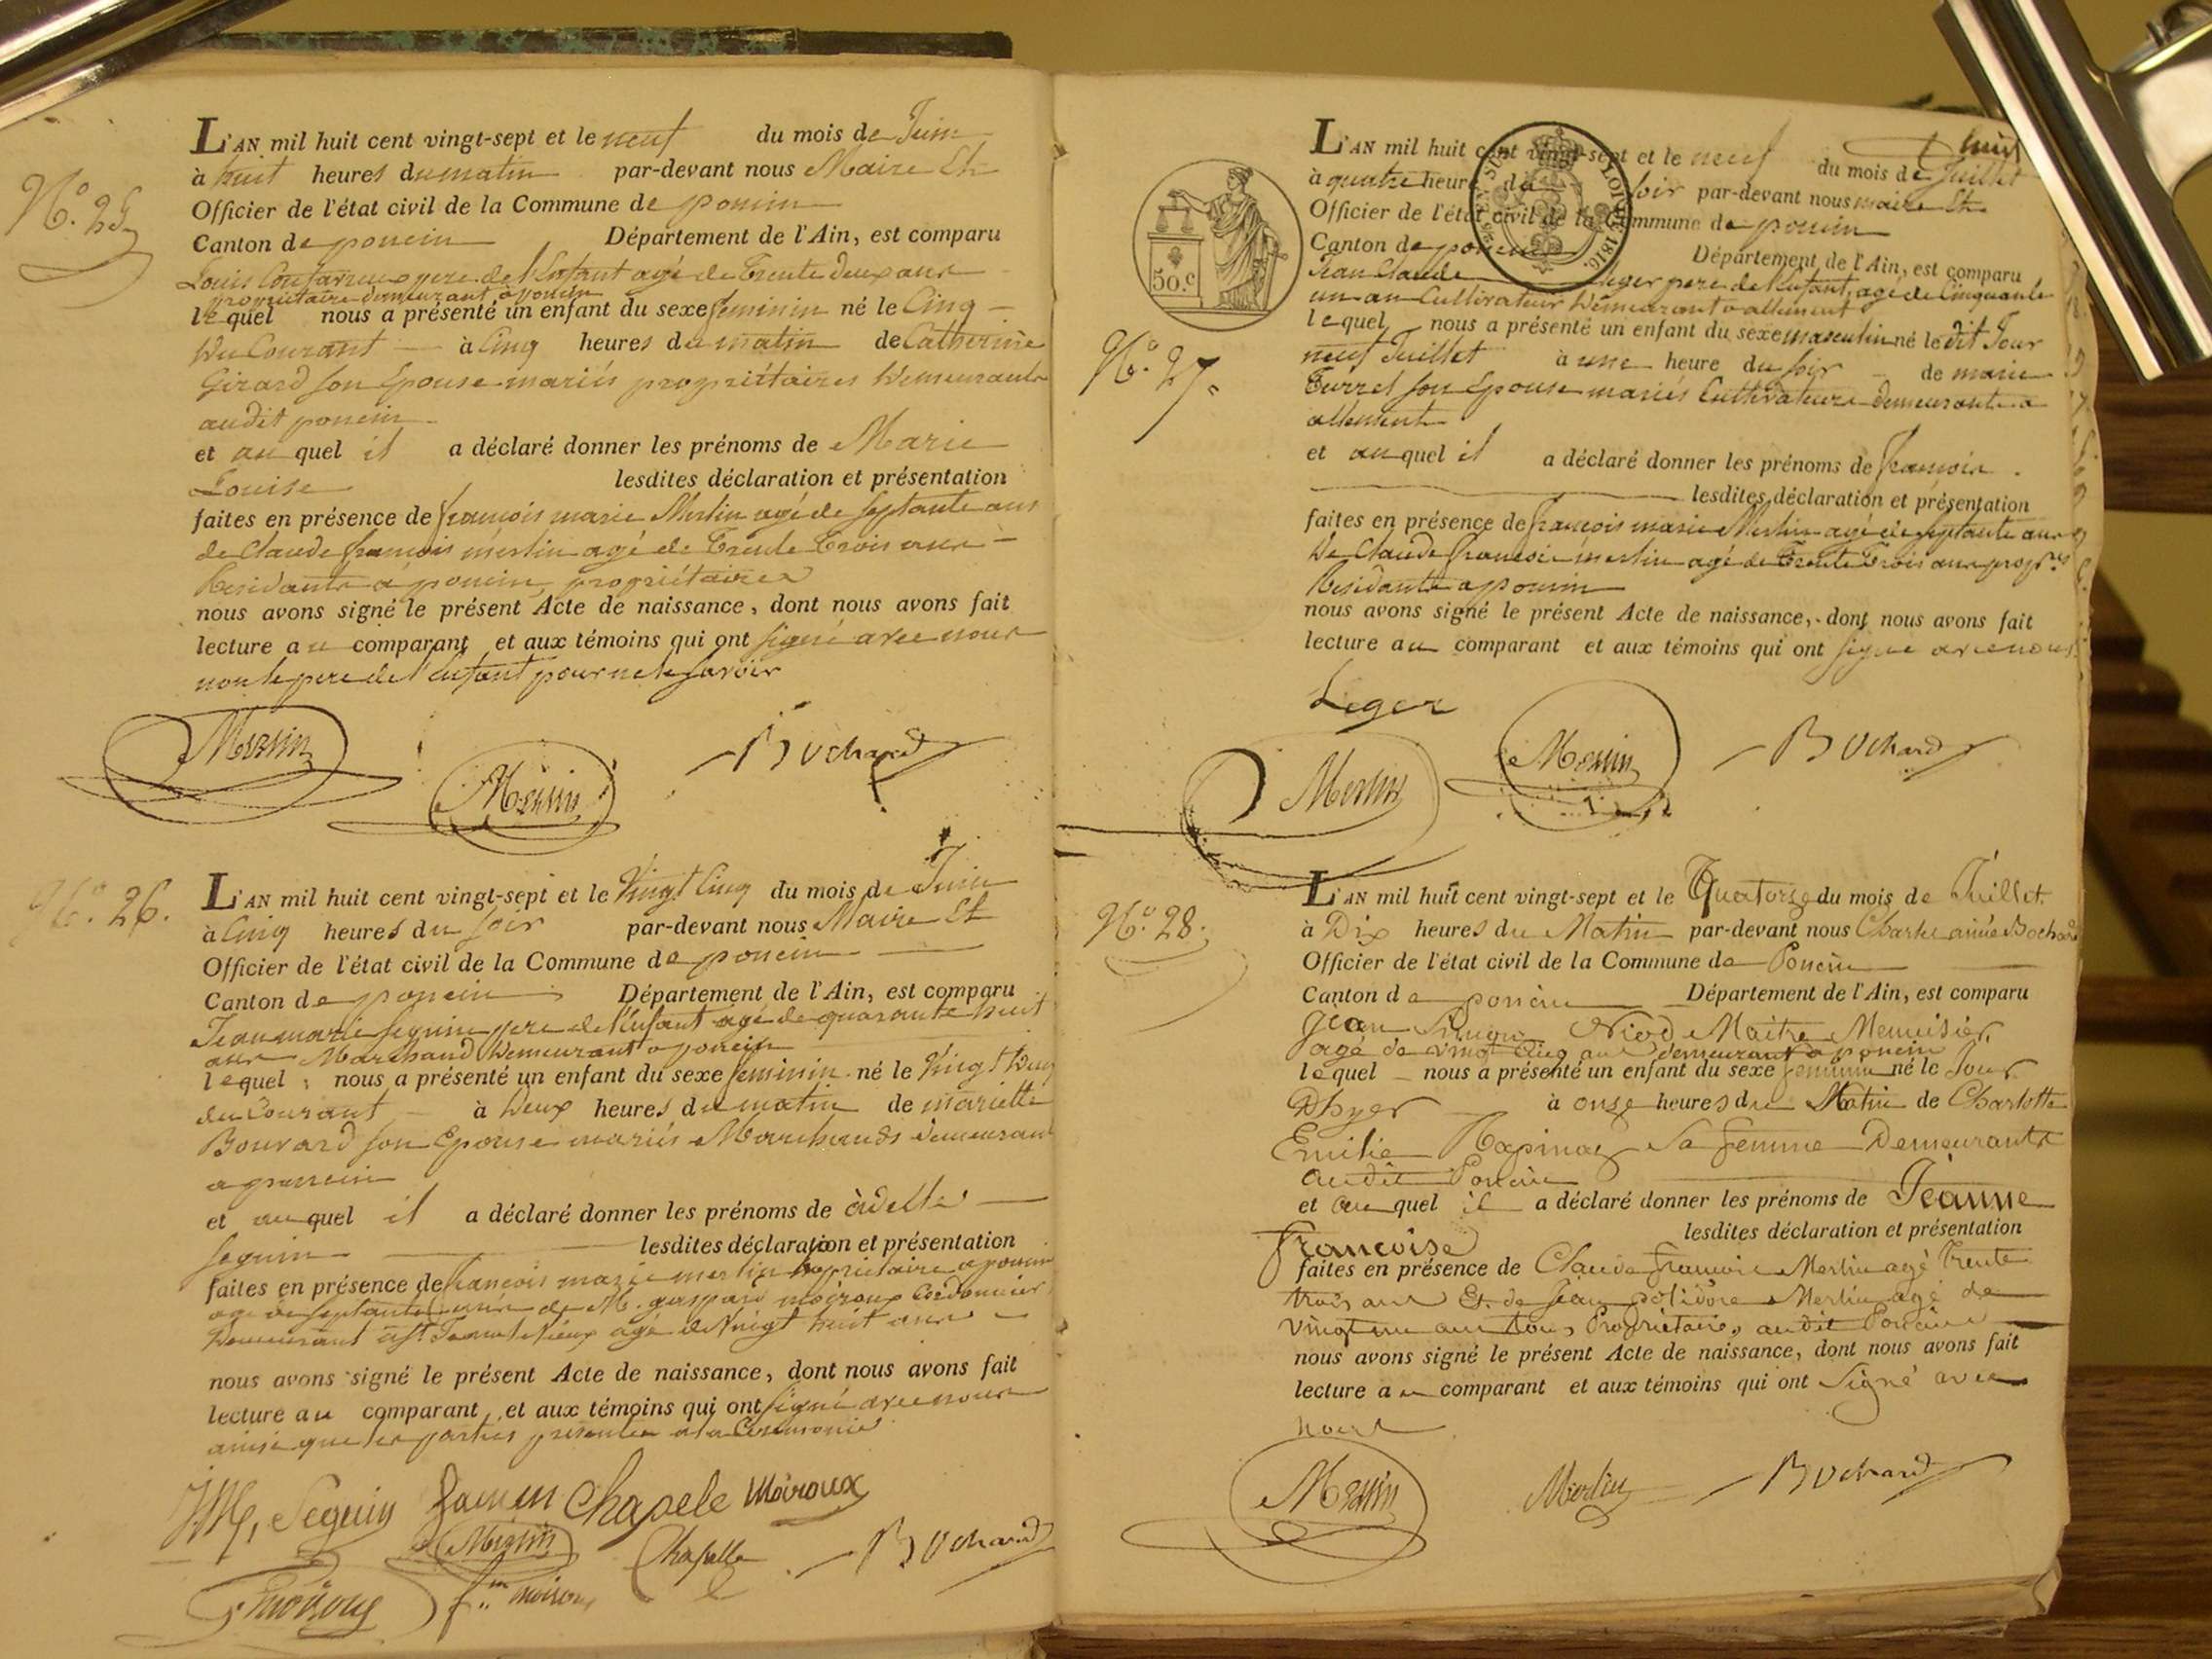 N.º 25
L'AN mil huit cent vingt-sept et le neuf du mois de Juin
à huit heures du matin par-devant nous Maire Et
Officier de l'état civil de la Commune de poncin
Canton de poncin Département de l'Ain, est comparu
Louis pere de l'Enfant agé de Trente deux ans
propriétaire demeurant à poncin
lequel nous a présenté un enfant du sexe feminin né le Cinq
du Courant à Cinq heures du matin de Catherine
Girard son Epouse mariés propriétaires Demeurants
audit poncin
et au quel il a déclaré donner les prénoms de Marie
Louise lesdites déclaration et présentation
faites en présence de francois marie Merlin agé de septante ans
de Claude francois merlin agé de Trente Trois ans
Residants a poncin propriétaires
nous avons signé le présent Acte de naissance, dont nous avons fait
lecture au comparant et aux témoins qui ont signé avec nous
non le pere de l'enfant pour ne le savoir
Merlin
Merlin
Bochard
N.º 26.
L'AN mil huit cent vingt-sept et le Vingt Cinq du mois de Juin
à Cinq heures du soir par-devant nous Maire Et
Officier de l'état civil de la Commune de poncin
Canton de poncin Département de l'Ain, est comparu
Jean marie seguin pere de l'enfant agé de quarante huit
ans Marchand Demeurant a poncin
lequel nous a présenté un enfant du sexe feminin né le Vingt
du Courant à Deux heures du matin de mariette
Bouvard son Epouse mariés Marchands demeurant
a poncin
et au quel il a déclaré donner les prénoms de adelle
seguin lesdites déclaration et présentation
faites en présence de francois marie merlin propriétaire a poncin
agé de septante ans de M. gaspard moiroux Cordonnier
Demeurant a St Jean le Vieux agé de Vingt huit ans
nous avons signé le présent Acte de naissance, dont nous avons fait
lecture au comparant et aux témoins qui ont signé avec nous
ainsi que les parties presentes a la Ceremonie
JM, Seguin Chapele Moiroux
Merlin Chapelle Bochard
Moiroux
N.º 27
50.c
LOI DE 1816.
L'AN mil huit cent vingt-sept et le neuf du mois de Juillet
à quatre heure du soir par-devant nous maire Et
Officier de l'état civil de la Commune de poncin
Canton de poncin Département de l'Ain, est comparu
Jean Claude Leger pere de l'enfant, agé de Cinquante
un an Cultivateur Demeurant a allement
lequel nous a présenté un enfant du sexe masculin né le dit Jour
neuf Juillet à une heure du soir de marie
Turrel son Epouse mariés Cultivateurs demeurants a
allement
et au quel il a déclaré donner les prénoms de francois
lesdites déclaration et présentation
faites en présence de francois marie Merlin agé de septante ans
De Claude francois merlin agé de Trente Trois ans prop.res
Residants a poncin
nous avons signé le présent Acte de naissance, dont nous avons fait
lecture au comparant et aux témoins qui ont signé avec nous
Leger
Merlin
Merlin
Bochard
N.º 28.
L'AN mil huit cent vingt-sept et le Quatorze du mois de Juillet
à Dix heures du Matin par-devant nous Bochard
Officier de l'état civil de la Commune de Poncin
Canton de poncin Département de l'Ain, est comparu
Jean Niod Maitre Menuisier,
agé de vingt Cinq ans demeurant a poncin
lequel nous a présenté un enfant du sexe feminin né le Jour
Dhyer à onze heures du Matin de Charlotte
Emilie sa femme Demeurants
audit Poncin
et au quel il a déclaré donner les prénoms de Jeanne
Francoise lesdites déclaration et présentation
faites en présence de Claude francois Merlin agé trente
trois ans Et de Jean polidore Merlin agé de
vingt un ans tous Propriétaires audit Poncin
nous avons signé le présent Acte de naissance, dont nous avons fait
lecture au comparant et aux témoins qui ont Signé avec
nous
Merlin
Merlin
Bochard